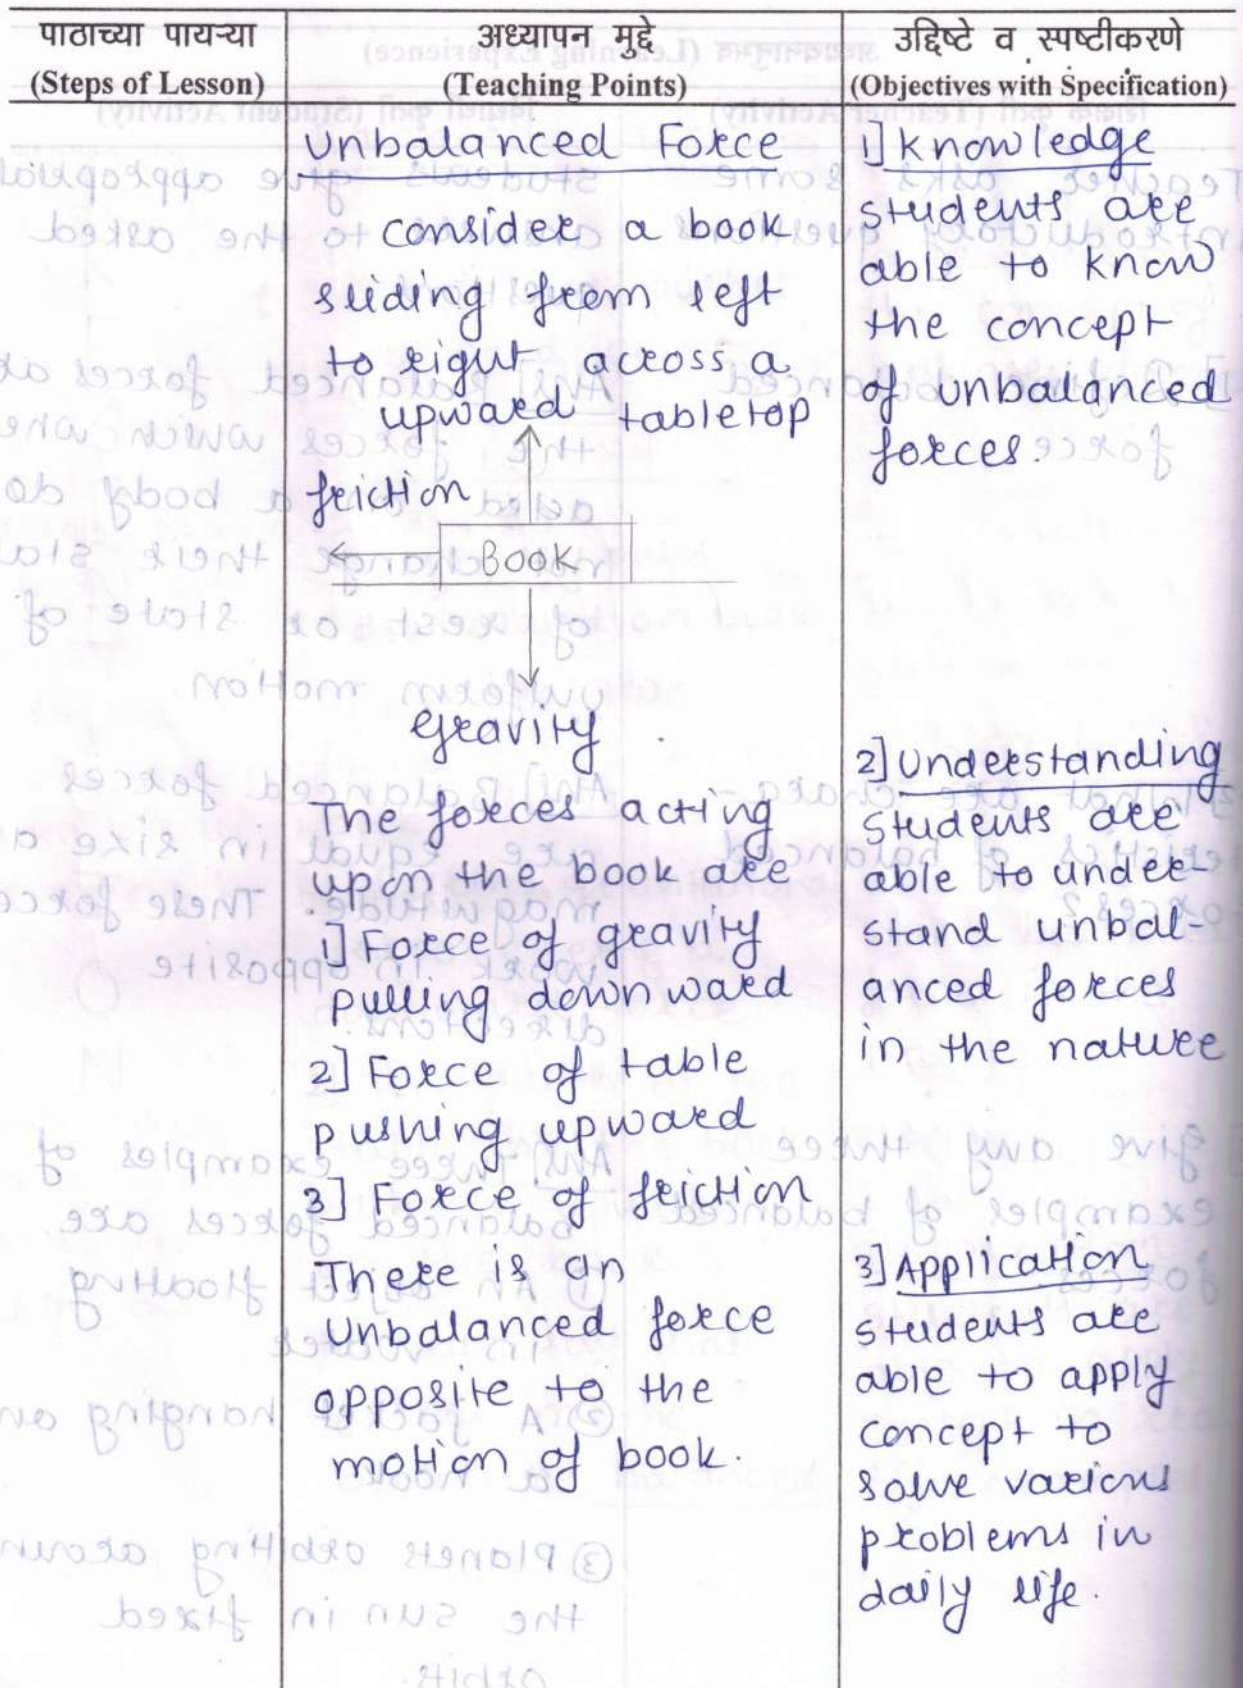 पाठाच्या पायऱ्या
(Steps of Lesson)
अध्यापन मुद्दे
(Teaching Points)
उद्दिष्टे व स्पष्टीकरणे
(Objectives with Specification)
Unbalanced Force
consider a book
sliding from left
to right across a
tabletop
upward
friction
BOOK
gravity
The forces acting
upon the book are
1] Force of gravity
pulling downward
2] Force of table
pushing upward
3] Force of friction
There is an
Unbalanced force
opposite to the
motion of book.
1] knowledge
students are
able to know
the concept
of unbalanced
forces.
2] Understanding
students are
able to under-
stand unbal-
anced forces
in the nature
3] Application
students are
able to apply
concept to
solve various
problems in
daily life.